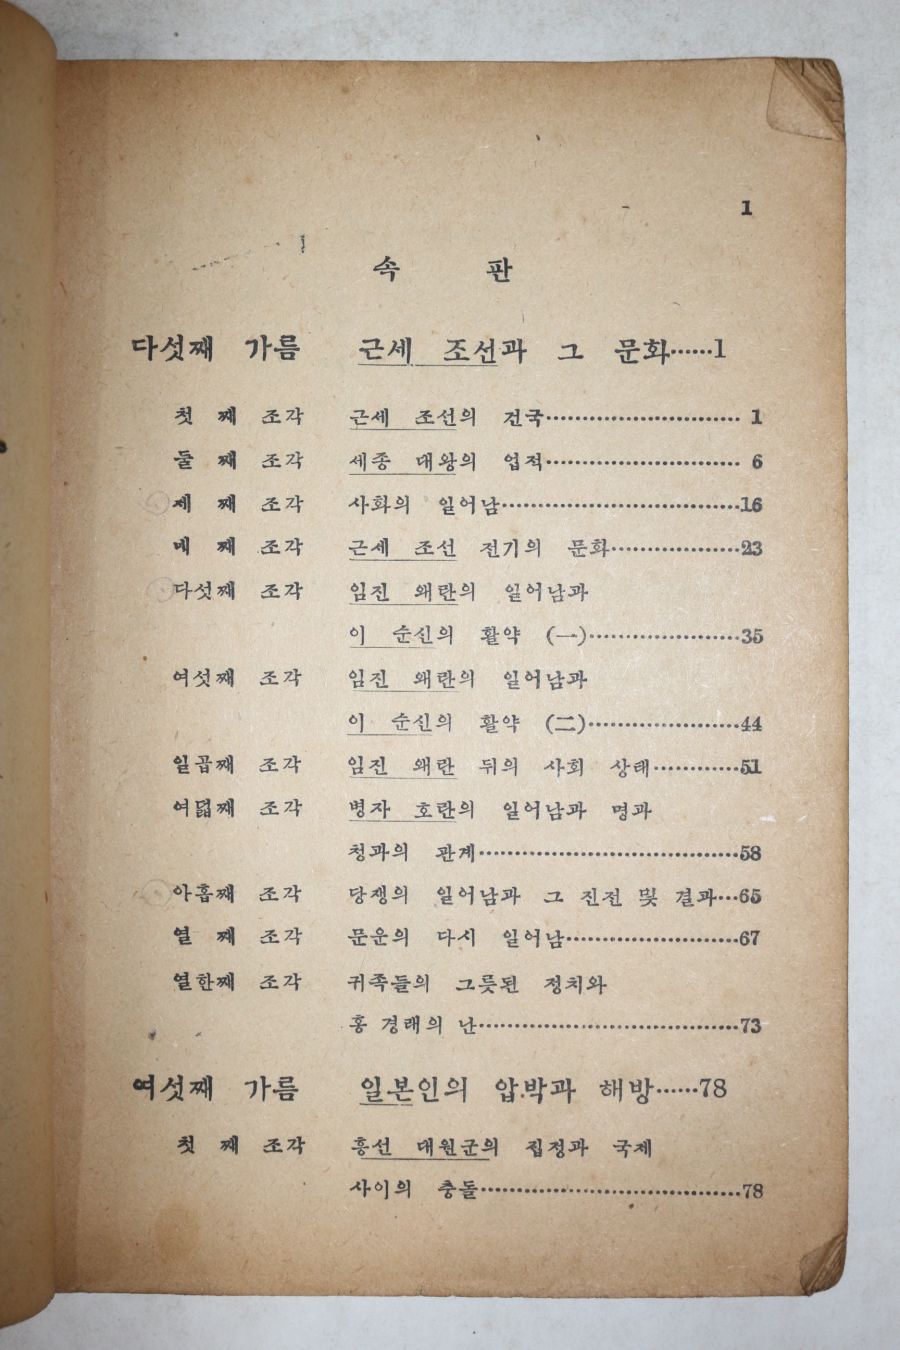 1
속 판
다섯째 가름 근세 조선과 그 문화……1
첫 째 조각 근세 조선의 건국………………………… 1
둘 째 조각 세종 대왕의 업적………………………… 6
세 째 조각 사화의 일어남………………………………16
네 째 조각 근세 조선 전기의 문화…………………23
다섯째 조각 임진 왜란의 일어남과
이 순신의 활약 (一)……………………35
여섯째 조각 임진 왜란의 일어남과
이 순신의 활약 (二)……………………44
일곱째 조각 임진 왜란 뒤의 사회 상태…………51
여덟째 조각 병자 호란의 일어남과 명과
청과의 관계…………………………………58
아홉째 조각 당쟁의 일어남과 그 진전 및 결과…65
열 째 조각 문운의 다시 일어남………………………67
열한째 조각 귀족들의 그릇된 정치와
홍 경래의 난…………………………………73
여섯째 가름 일본인의 압박과 해방……78
첫 째 조각 흥선 대원군의 집정과 국제
사이의 충돌…………………………………78